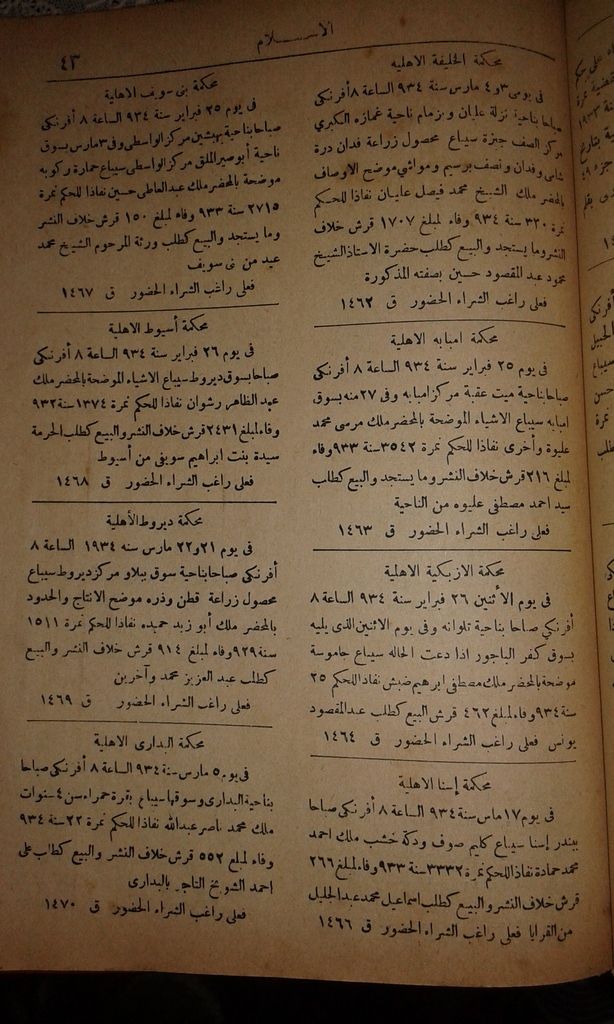 الاســـلام
٤٣
محكمة الخليفة الاهليه
فى يومى ٣و٤ مارس سنة ٩٣٤ الساعة ٨ أفرنكى
صباحا بناحية نزلة عليان وبزمام ناحية غمازه الكبرى
مركز الصف جيزة سيباع محصول زراعة فدان درة
شامى وفدان ونصف برسيم ومواشي موضح الاوصاف
بالمحضر ملك الشيخ محمد فيصل عليان نفاذا للحكم
نمرة ٣٢٠ سنة ٩٣٤ وفاء لمبلغ ١٧٠٧ قرش خلاف
النشر وما يستجد والبيع كطلب حضرة الاستاذ الشيخ
محمود عبد المقصود حسين بصفته المذكورة
فعلى راغب الشراء الحضور ق ١٤٦٢
محكمة امبابه الاهلية
فى يوم ٢٥ فبراير سنة ٩٣٤ الساعة ٨ أفرنكى
صباحا بناحية ميت عقبة مركز امبابه وفى ٢٧ منه بسوق
امبابه سيباع الاشياء الموضحة بالمحضر ملك مرسى محمد
عليوة وأخرى نفاذا للحكم نمرة ٣٥٤٢ سنة ٩٣٣ وفاء
لمبلغ ٢١٦ قرش خلاف النشر وما يستجد والبيع كطلب
سيد احمد مصطفى عليوه من الناحية
فعلى راغب الشراء الحضور ق ١٤٦٣
محكمة الازبكية الاهلية
فى يوم الأثنين ٢٦ فبراير سنة ٩٣٤ الساعة ٨
أفرنكي صباحا بناحية تلوانه وفى يوم الاثنين الذى يليه
بسوق كفر الباجور اذا دعت الحاله سيباع جاموسة
موضحة بالمحضر ملك مصطفى ابرهيم ضبش نفاذا للحكم ٢٥
سنة ٩٣٤ وفاء لمبلغ ٤٦٢ قرش البيع كطلب عبد المقصود
يونس فعلى راغب الشراء الحضور ق ١٤٦٤
محكمة إسنا الاهلية
فى يوم ١٧ مارس سنة ٩٣٤ الساعة ٨ أفرنكى صباحا
ببندر إسنا سيباع كليم صوف ودكة خشب ملك احمد
محمد حمادة نفاذا للحكم نمرة ٣٣٣٢ سنة ٩٣٣ وفاء لمبلغ ٢٦٦
قرش خلاف النشر والبيع كطلب اسماعيل محمد عبد الجليل
من القرايا فعلى راغب الشراء الحضور ق ١٤٦٦
محكمة بنى سويف الاهاية
فى يوم ٢٥ فبراير سنة ٩٣٤ الساعة ٨ أفرنكى
صباحا بناحية بهبشين مركز الواسطى وفى ٣ مارس بسوق
ناحية أبو صير الملق مركز الواسطى سيباع حمارة ركوبه
موضحة بالمحضر ملك عبد العاطى حسين نفاذا للحكم نمرة
٢٧١٥ سنة ٩٣٣ وفاء لمبلغ ١٥٠ قرش خلاف النشر
وما يستجد والبيع كطلب ورثة المرحوم الشيخ محمد
عيد من بنى سويف
فعلى راغب الشراء الحضور ق ١٤٦٧
محكمة أسيوط الاهلية
فى يوم ٢٦ فبراير سنة ٩٣٤ الساعة ٨ أفرنكى
صباحا بسوق ديروط سيباع الاشياء الموضحة بالمحضر ملك
عبد الظاهر رشوان نفاذا للحكم نمرة ١٣٧٤ سنة ٩٣٢
وفاء لمبلغ ٢٤٣١ قرش خلاف النشر والبيع كطلب الحرمة
سيدة بنت ابراهيم سويفى من أسيوط
فعلى راغب الشراء الحضور ق ١٤٦٨
محكمة ديروط الأهلية
فى يوم ٢١و٢٢ مارس سنه ١٩٣٤ الساعة ٨
أفرنكى صباحا بناحية سوق ببلاو مركز ديروط سيباع
محصول زراعة قطن وذره موضح الانتاج والحدود
بالمحضر ملك أبو زيد حميده نفاذا للحكم نمرة ١٥١١
سنة ٩٢٩ وفاء لمبلغ ٩١٤ قرش خلاف النشر والبيع
كطلب عبد العزيز محمد وآخرين
فعلى راغب الشراء الحضور ق ١٤٦٩
محكمة البدارى الاهلية
فى يوم ٥ مارس سنة ٩٣٤ الساعة ٨ أفرنكى صباحا
بناحية البدارى وسوقها سيباع بقرة حمراء سن ٤ سنوات
ملك محمد ناصر عبدالله نفاذا للحكم نمرة ٢٢ سنة ٩٣٤
وفاء لمبلغ ٥٥٢ قرش خلاف النشر والبيع كطلب على
احمد الشويخ التاجر بالبدارى
فعلى راغب الشراء الحضور ق ١٤٧٠